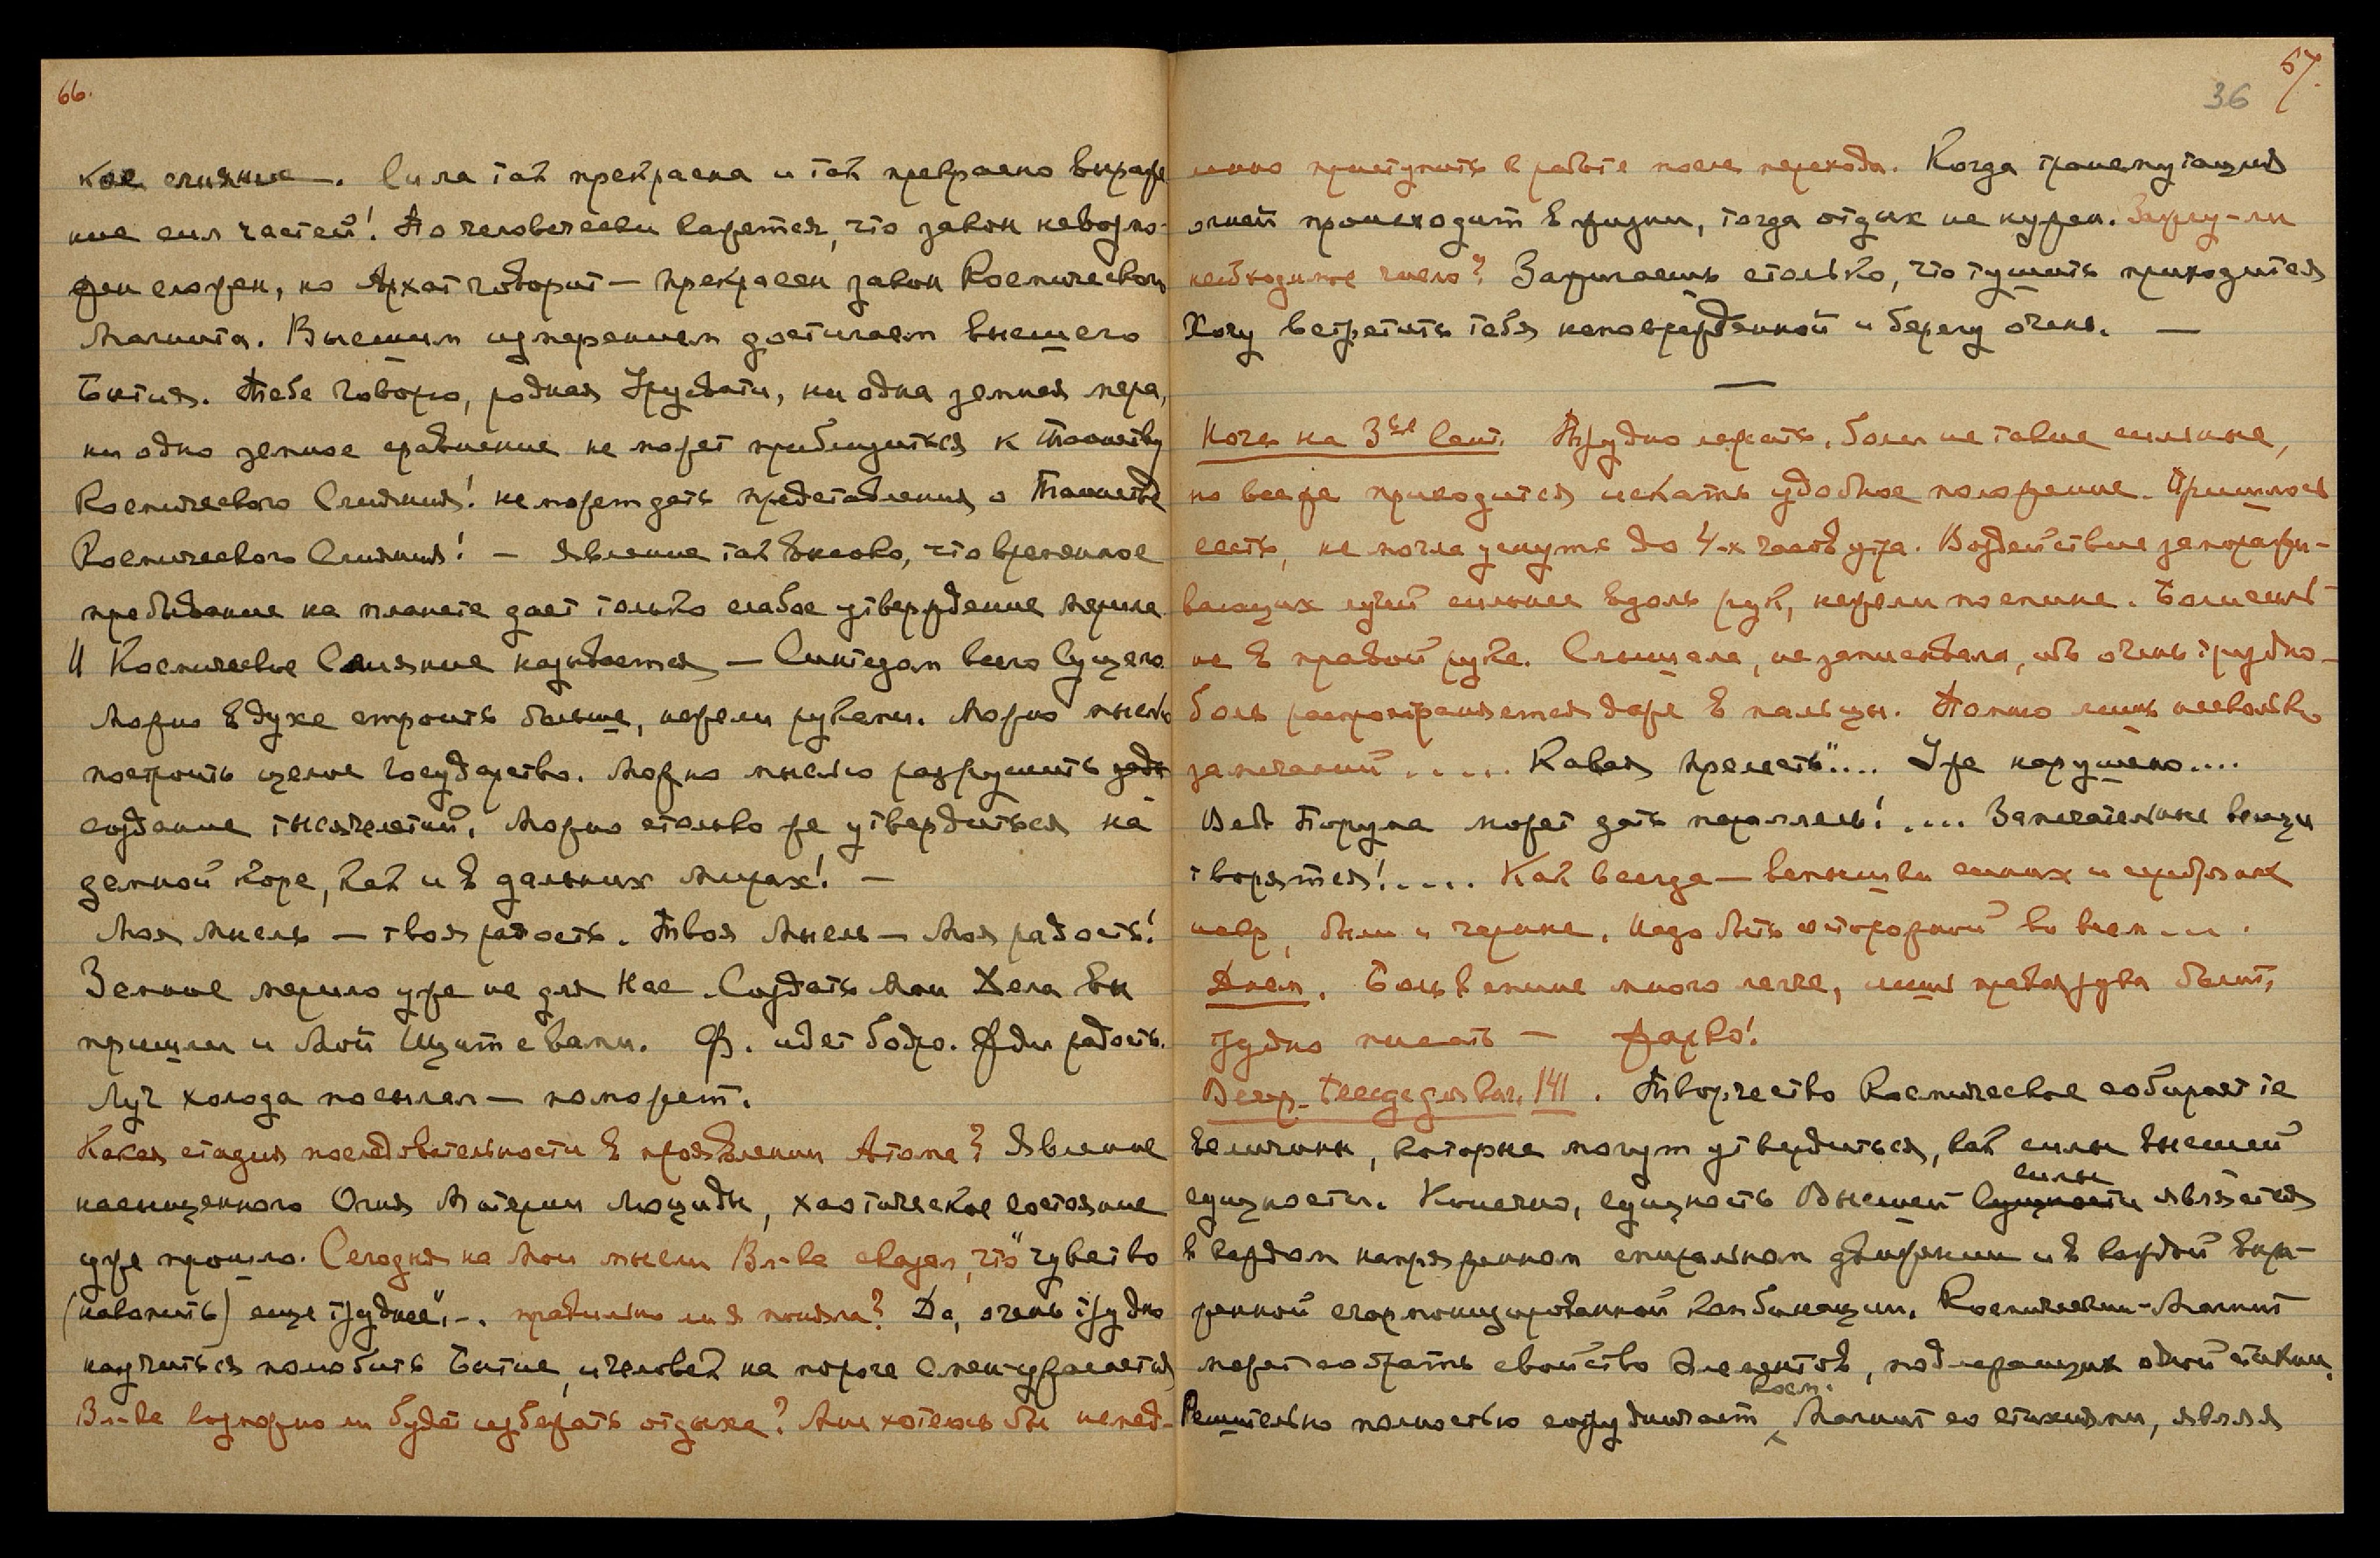 66.
кое слияние —. Сила так прекрасна и так прекрасно выраже
ние сил частей! По человечески кажется, что закон невозмо-
жен сложен, но Архат говорит — прекрасен закон Космического
Магнита. Высшим измерением достигаем высшего
Бытия. Тебе говорю, родная Урусвати, ни одна земная мера,
ни одно земное сравнение не может приблизиться к Таинству
Космического Слияния! не может дать представления о Таинстве
Космического Слияния! — явление так высоко, что временное
пребывание на планете дает только слабое утверждение мерила.
И Космическое Слияние называется — Синтезом всего Сущего.
Можно в духе строить больше, нежели руками. Можно мыслью
построить целое государство. Можно мыслью разрушить
создание тысячелетий. Можно столько же утвердиться на
земной коре, как и в дальних мирах! —
Моя мысль — твоя радость. Твоя мысль — Моя радость!
Земное мерило уже не для нас. Создать Мои Дела вы
пришли и Мой Щит с вами. Ф. идет бодро. Жди радость.
Луч холода посылал — поможет.
Какая стадия последовательности в проявлении Атома? Явление
насыщенного Огня Материи Люциды, хаотическое состояние
уже прошло. Сегодня на мои мысли Вл-ка сказал, что "чувство
(накопить) еще труднее", —. правильно ли я поняла? Да, очень трудно
научиться полюбить Бытие, и человек на пороге смен ужасается
Вл-ка возможно ли будет избежать отдыха? Мне хотелось бы немед-
57.
36
ленно приступить к работе после перехода. Когда трансмутация
огней происходит в жизни, тогда отдых не нужен. Зажгу-ли
необходимое число? Зажигаешь столько, что тушить приходится
Хочу встретить тебя неповрежденной и берегу очень. —
—
Ночь на 3ье Сент. Трудно лежать, боли не такие сильные,
но все же приходится искать удобное положение. Пришлось
сесть, не могла уснуть до 4-х часов утра. Воздействие заморажи-
вающих лучей сильнее вдоль рук, нежели по спине. Болезнь
не в правой руке. Слышала, не записывала, ибо очень трудно —
боль распространяется даже в пальцы. Помню лишь несколько
замечаний ..... Какая прелесть".... Уже нарушено....
Вел. Порума может дать параллель! .... Замечательные вещи
творятся!..... Как всегда — вспышки синих и серебряных
искр, были и черные. Надо быть осторожной во всем ....
Днем. Боль в спине много легче, лишь правая рука болит,
трудно писать — жарко!
Веер. Беседа для вас. 141. Творчество Космическое собирает те
величины, которые могут утвердиться, как силы высшей
сущности. Конечно, сущность Высшей Сущности силы является
в каждом напряженном спиральном движении и в каждой выра-
женной сгармонизированной комбинации. Космический Магнит
может собрать свойство элементов, подлежащих одной стихии.
Решительно полностью сотрудничает Косм. Магнит со стихиями, являя